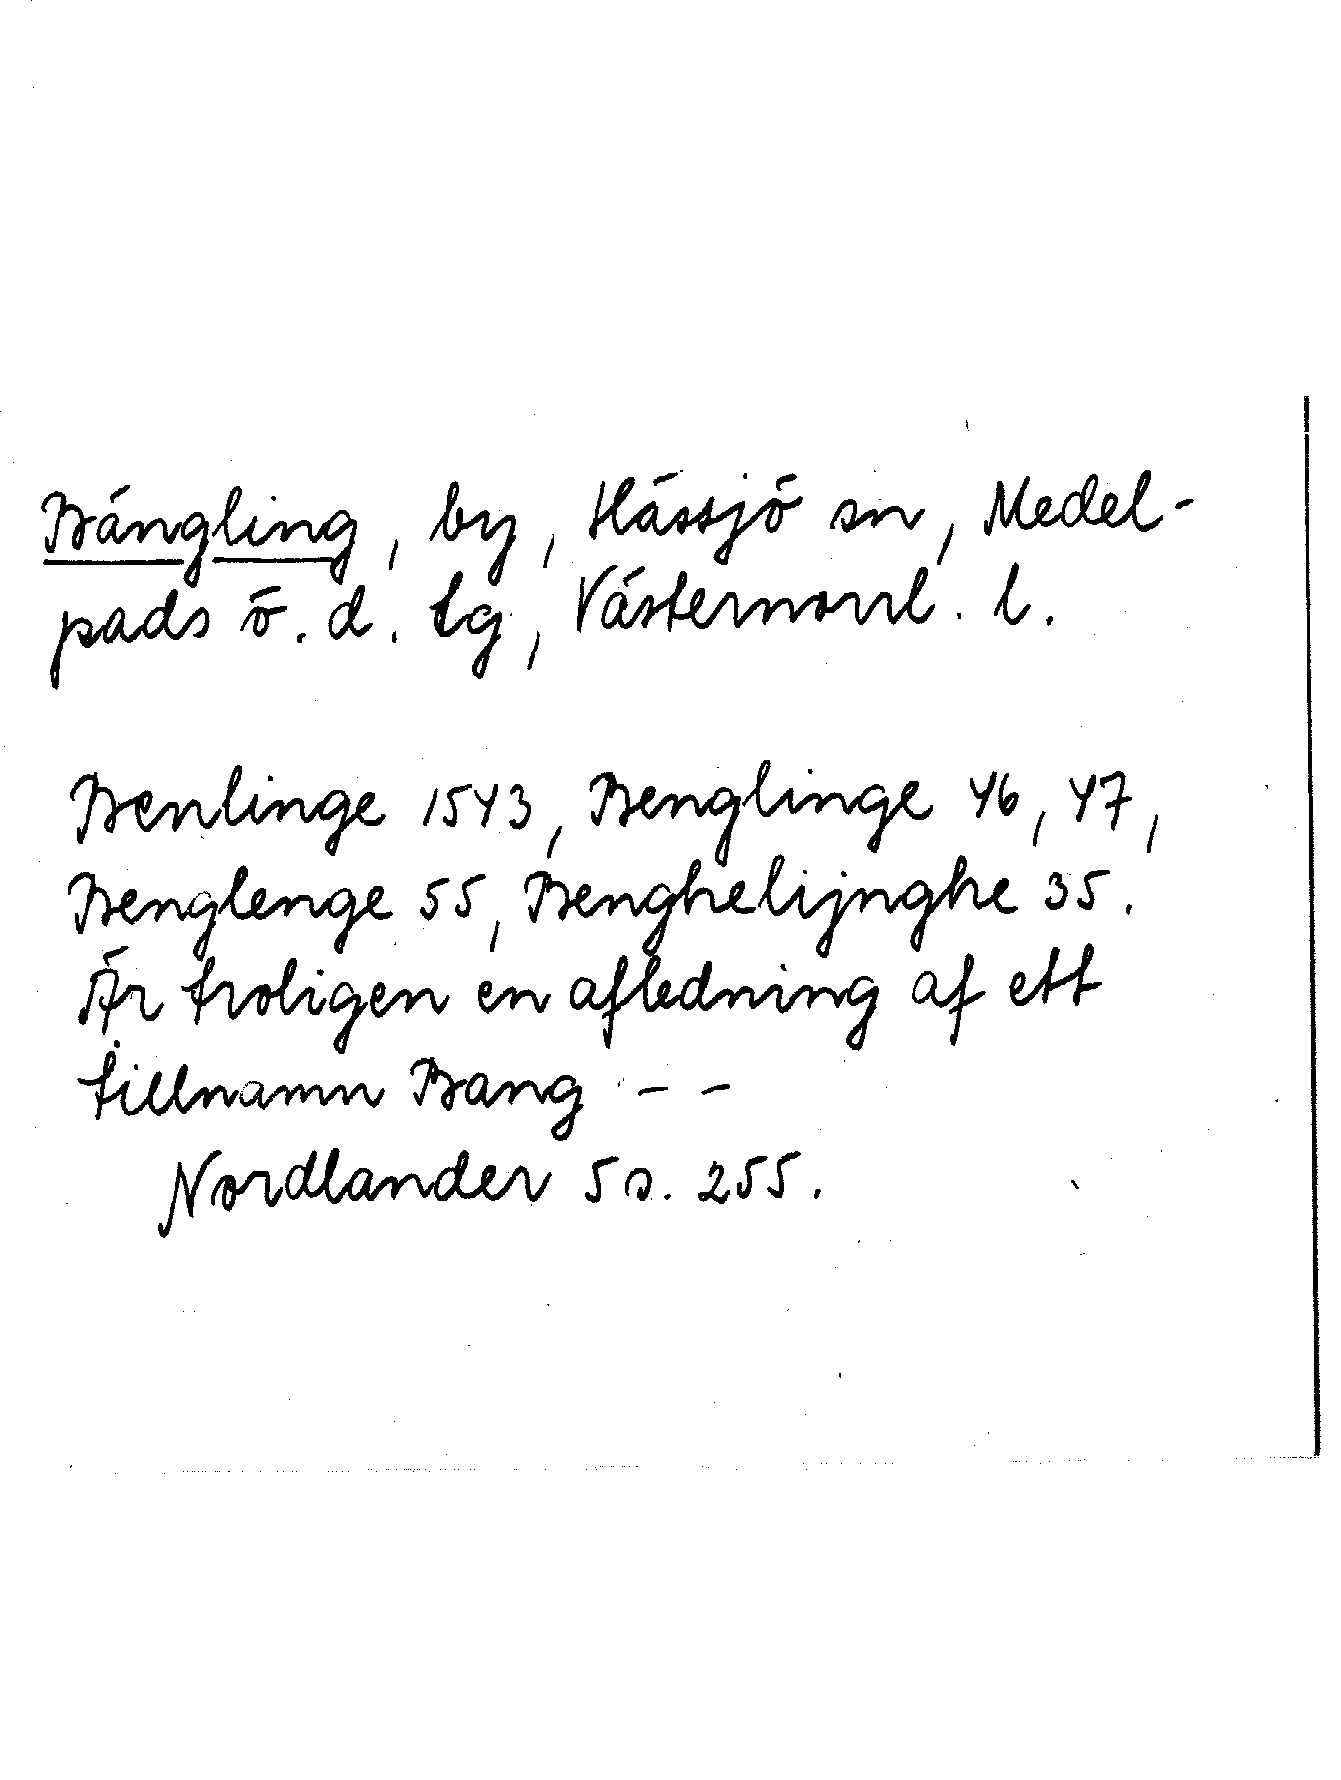 Bängling, by, Hässjö sn, Medel-
pads ö. d. tg, Västernorrl. l.
Benlinge 1543, Benglinge 46, 47,
Benglenge 55, Benghelijnghe 35.
Är troligen en afledning af ett
tillnamn Bang - -
Nordlander 5 s. 255.